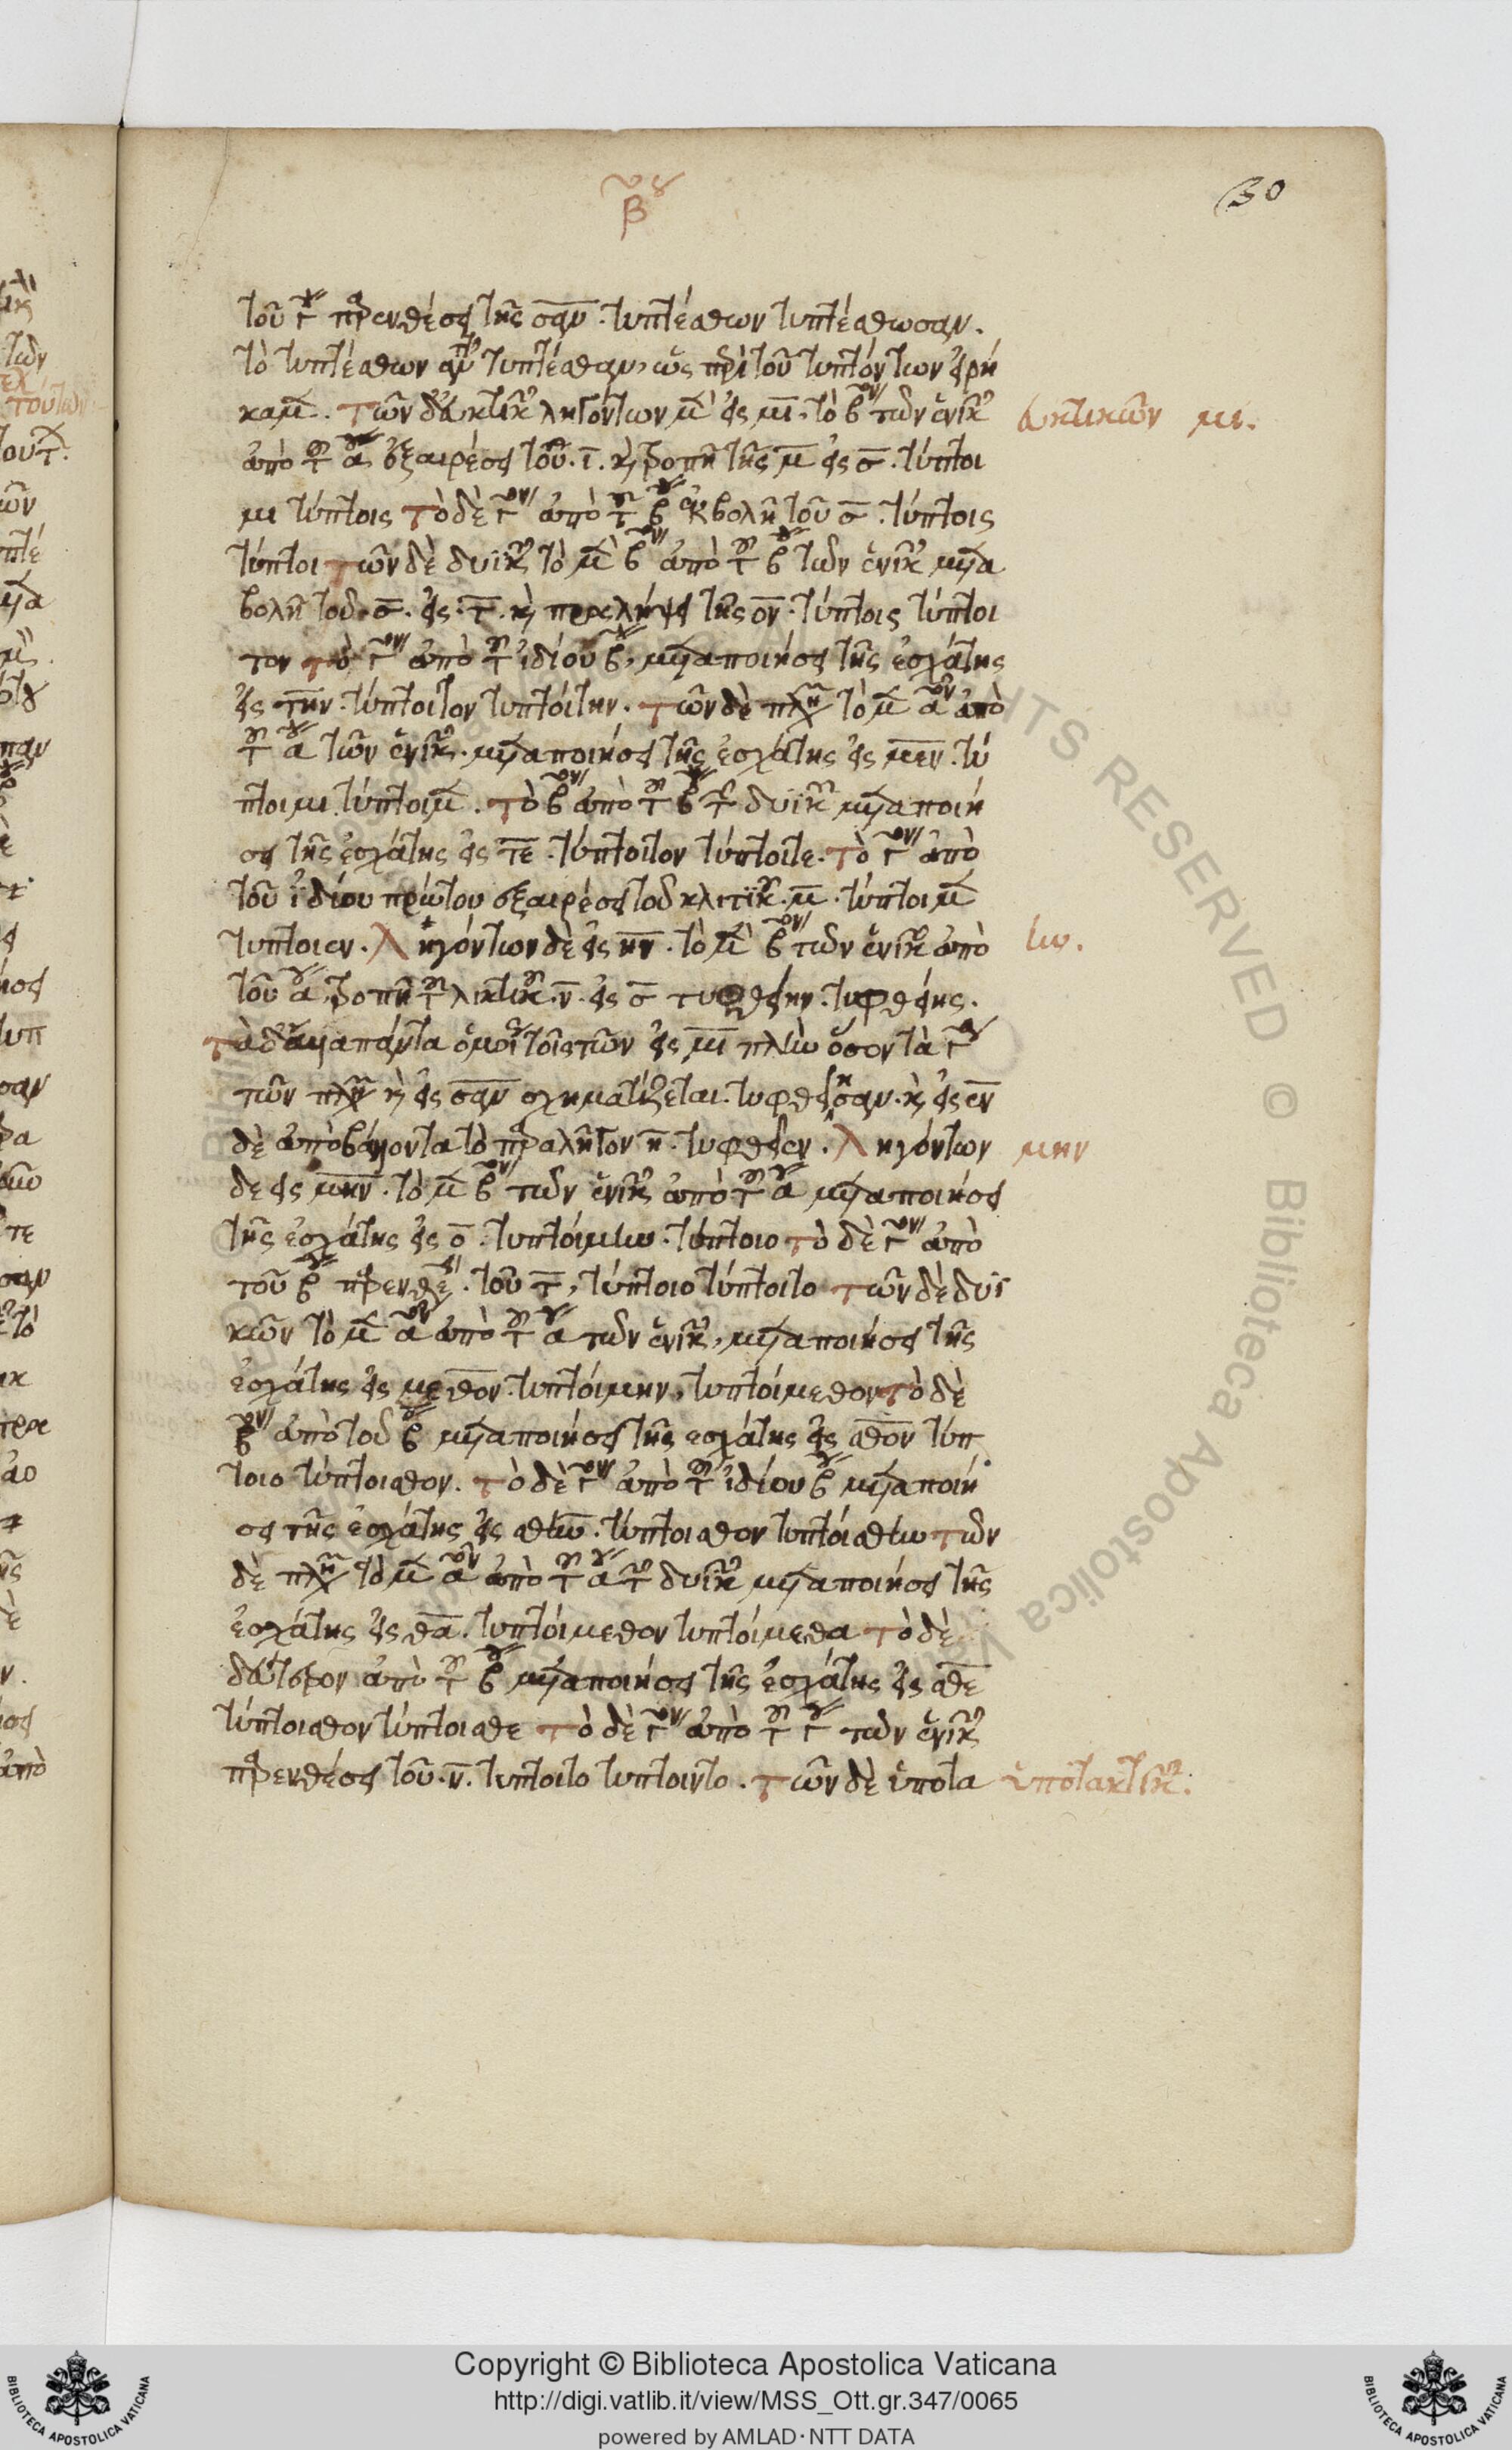 βου
60
τοῦ γου παρενθέσει τῆς σαν. τυπτέσθων τυπτέσθωσαν.
τὸ τυπτέσθων ἀντὶ τυπτέσθαν, ὡς περὶ τοῦ τυπτόντων εἰρή
καμεν. τῶν δ' εὐκτικῶν ληγόντων μὲν εἰς μι, τὸ βον τῶν ἑνικῶν
εὐκτικῶν μι.
ἀπὸ τοῦ αου ἐξαιρέσει τοῦ .ι. καὶ τροπῇ τῆς μ εἰς σ. τύπτοι
μι τύπτοις τὸ δὲ γον ἀπὸ τοῦ βου ἐκβολῇ τοῦ σ. τύπτοις
τύπτοι τῶν δὲ δυϊκῶν τὸ μὲν βον ἀπὸ τοῦ βου τῶν ἑνικῶν μετα
βολῇ τοῦ σ. εἰς .τ. καὶ προσλήψει τῆς ον. τύπτοις τύπτοι
τον τὸ γον ἀπὸ τοῦ ἰδίου βου, μεταποιήσει τῆς ἐσχάτης
εἰς την. τύπτοιτον τυπτοίτην. τῶν δὲ πλην τὸ μὲν αον ἀπὸ
τοῦ αου τῶν ἑνικῶν. μεταποιήσει τῆς ἐσχάτης εἰς μεν. τύ
πτοιμι τύπτοιμεν. τὸ βον ἀπὸ τοῦ βου τῶν δυϊκῶν μεταποιή
σει τῆς ἐσχάτης εἰς τε. τύπτοιτον τύπτοιτε. τὸ γον ἀπὸ
τοῦ ἰδίου πρώτου ἐξαιρέσει τοῦ κλιτικοῦ .μ. τύπτοιμεν
τυπτοιεν. Ληγόντων δὲ εἰς ην. τὸ μὲν βον τῶν ἑνικῶν ἀπὸ
ην.
τοῦ αου, τροπῇ τοῦ ληκτικοῦ .ν. εἰς σ τυφθείην. τυφθείης.
τὰ δ' ἄλλα πάντα ὁμοίως τοῖς τῶν εἰς μι πλὴν ὅσον τὰ γα
τῶν πλην καὶ εἰς σαν σχηματίζεται. τυφθείησαν. καὶ εἰς εν
δὲ ἀποβάλλοντα τὸ παραλῆγον η. τυφθεῖεν. Ληγόντων
μην
δε εις μην. τὸ μὲν βον τῶν ἑνικῶν ἀπὸ τοῦ αου μεταποιήσει
τῆς ἐσχάτης εἰς ο. τυπτοίμην. τύπτοιο τὸ δὲ γον ἀπὸ
τοῦ βου παρενθέσει. τοῦ τ, τύπτοιο τύπτοιτο τῶν δὲ δυϊ
κῶν τὸ μὲν αον ἀπὸ τοῦ αου τῶν ἑνικῶν, μεταποιήσει τῆς
ἐσχάτης εἰς μεθον. τυπτοίμην, τυπτοίμεθον τὸ δὲ
βον ἀπὸ τοῦ βου μεταποιήσει τῆς εσχάτης εἰς σθον τύπ
τοιο τύπτοισθον. τὸ δὲ γον ἀπὸ τοῦ ἰδίου βου μεταποιή
σει τῆς ἐσχάτης εἰς σθην. τύπτοισθον τυπτοίσθην τῶν
δὲ πλην τὸ μὲν αον ἀπὸ τοῦ αου τῶν δυϊκῶν μεταποιήσει τῆς
ἐσχάτης εἰς θα. τυπτοίμεθον τυπτοίμεθα τὸ δὲ
δεύτερον ἀπὸ τοῦ βου μεταποιήσει τῆς ἐσχάτης εἰς σθε
τύπτοισθον τύπτοισθε τὸ δὲ γον ἀπὸ τοῦ γου τῶν ἑνικῶν
παρενθέσει τοῦ .ν. τυπτοιτο τυπτοιντο. τῶν δὲ ὑποτα
ὑποτακτικῶν.
Copyright © Biblioteca Apostolica Vaticana
http://digi.vatlib.it/view/MSS_Ott.gr.347/0065
powered by AMLAD·NTT DATA